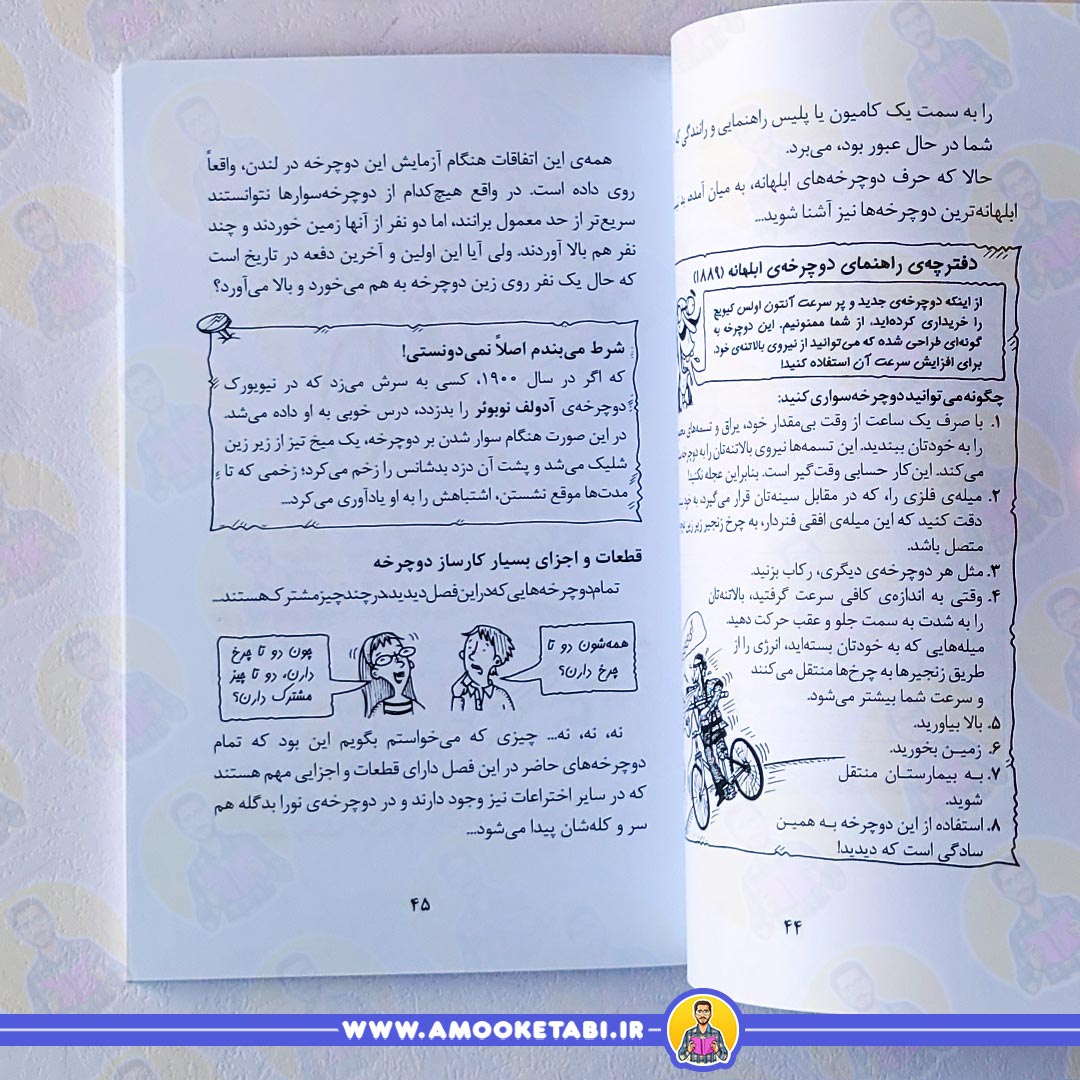 را به سمت یک کامیون یا پلیس راهنمایی و رانندگی
شما در حال عبور بود، می‌برد.
حالا که حرف دوچرخه‌های ابلهانه، به میان آمده،
ابلهانه‌ترین دوچرخه‌ها نیز آشنا شوید...
دفترچه‌ی راهنمای دوچرخه‌ی ابلهانه (۱۸۸۹)
از اینکه دوچرخه‌ی جدید و پر سرعت آنتون اولس کیویچ
را خریداری کرده‌اید، از شما ممنونیم. این دوچرخه به
گونه‌ای طراحی شده که می‌توانید از نیروی بالاتنه‌ی خود،
برای افزایش سرعت آن استفاده کنید!
چگونه می‌توانید دوچرخه‌سواری کنید:
۱. با صرف یک ساعت از وقت بی‌مقدار خود، یراق و تسمه‌های
را به خودتان ببندید. این تسمه‌ها نیروی بالاتنه‌تان را به
می‌کند. این کار حسابی وقت‌گیر است. بنابراین عجله نکنید!
۲. میله‌ی فلزی را، که در مقابل سینه‌تان قرار می‌گیرد، به
دقت کنید که این میله‌ی افقی فنردار، به چرخ زنجیر زیر زین
متصل باشد.
۳. مثل هر دوچرخه‌ی دیگری، رکاب بزنید.
۴. وقتی به اندازه‌ی کافی سرعت گرفتید، بالاتنه‌تان
را به شدت به سمت جلو و عقب حرکت دهید.
میله‌هایی که به خودتان بسته‌اید، انرژی را از
طریق زنجیرها به چرخ‌ها منتقل می‌کنند
و سرعت شما بیشتر می‌شود.
۵. بالا بیاورید.
۶. زمین بخورید.
۷. به بیمارستان منتقل
شوید.
۸. استفاده از این دوچرخه به همین
سادگی است که دیدید!
۴۴
همه‌ی این اتفاقات هنگام آزمایش این دوچرخه در لندن، واقعاً
روی داده است. در واقع هیچ‌کدام از دوچرخه‌سوارها نتوانستند
سریع‌تر از حد معمول برانند، اما دو نفر از آنها زمین خوردند و چند
نفر هم بالا آوردند. ولی آیا این اولین و آخرین دفعه در تاریخ است
که حال یک نفر روی زین دوچرخه به هم می‌خورد و بالا می‌آورد؟
شرط می‌بندم اصلاً نمی‌دونستی!
که اگر در سال ۱۹۰۰، کسی به سرش می‌زد که در نیویورک
دوچرخه‌ی آدولف نوبوئر را بدزدد، درس خوبی به او داده می‌شد.
در این صورت هنگام سوار شدن بر دوچرخه، یک میخ تیز از زیر زین
شلیک می‌شد و پشت آن دزد بدشانس را زخم می‌کرد؛ زخمی که تا
مدت‌ها موقع نشستن، اشتباهش را به او یادآوری می‌کرد...
قطعات و اجزای بسیار کارساز دوچرخه
تمام دوچرخه‌هایی که در این فصل دیدید، در چند چیز مشترک هستند...
همه‌شون دو تا
چرخ دارن؟
چون دو تا چرخ
دارن، دو تا چیز
مشترک دارن؟
نه، نه، نه... چیزی که می‌خواستم بگویم این بود که تمام
دوچرخه‌های حاضر در این فصل دارای قطعات و اجزایی مهم هستند
که در سایر اختراعات نیز وجود دارند و در دوچرخه‌ی نورا بدگله هم
سر و کله‌شان پیدا می‌شود...
۴۵
WWW.AMOOKETABI.IR